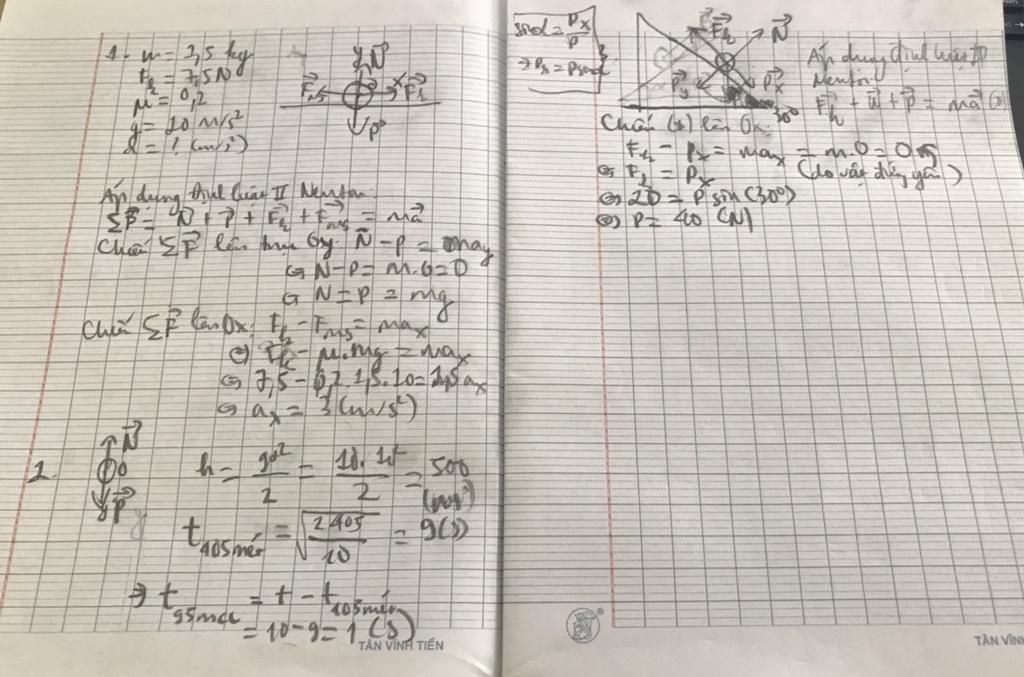 1. m = 1,5 kg
Fk = 7,5N
μ = 0,2
g = 10 m/s²
a = ? (m/s²)
y N⃗
F⃗ms O x F⃗k
P⃗
Áp dụng định luật II Newton
ΣF⃗ = N⃗ + P⃗ + F⃗k + F⃗ms = ma⃗
Chiếu ΣF⃗ lên trục Oy: N - P = may
⇔ N - P = m.0 = 0
⇔ N = P = mg
Chiếu ΣF⃗ lên Ox: Fk - Fms = max
⇔ Fk - μ.mg = max
⇔ 7,5 - 0,2.1,5.10 = 1,5ax
⇔ ax = 3 (m/s²)
2.
N⃗
O
P⃗
y
h = gt²/2 = 10.10²/2 = 500 (m)
t405 mét = √(2.405/10) = 9(s)
→ t95 mét = t - t405 mét
= 10 - 9 = 1 (s)
TÂN VĨNH TIẾN
sinα = Px/P
→ Px = Psinα
F⃗k N⃗
P⃗y P⃗x
30°
Áp dụng định luật II
Newton:
F⃗k + N⃗ + P⃗ = ma⃗ (*)
Chiếu (*) lên Ox:
Fk - Px = max = m.0 = 0
⇔ Fk = Px (do vật đứng yên)
⇔ 20 = P sin(30°)
⇔ P = 40 (N)
TÂN VĨNH